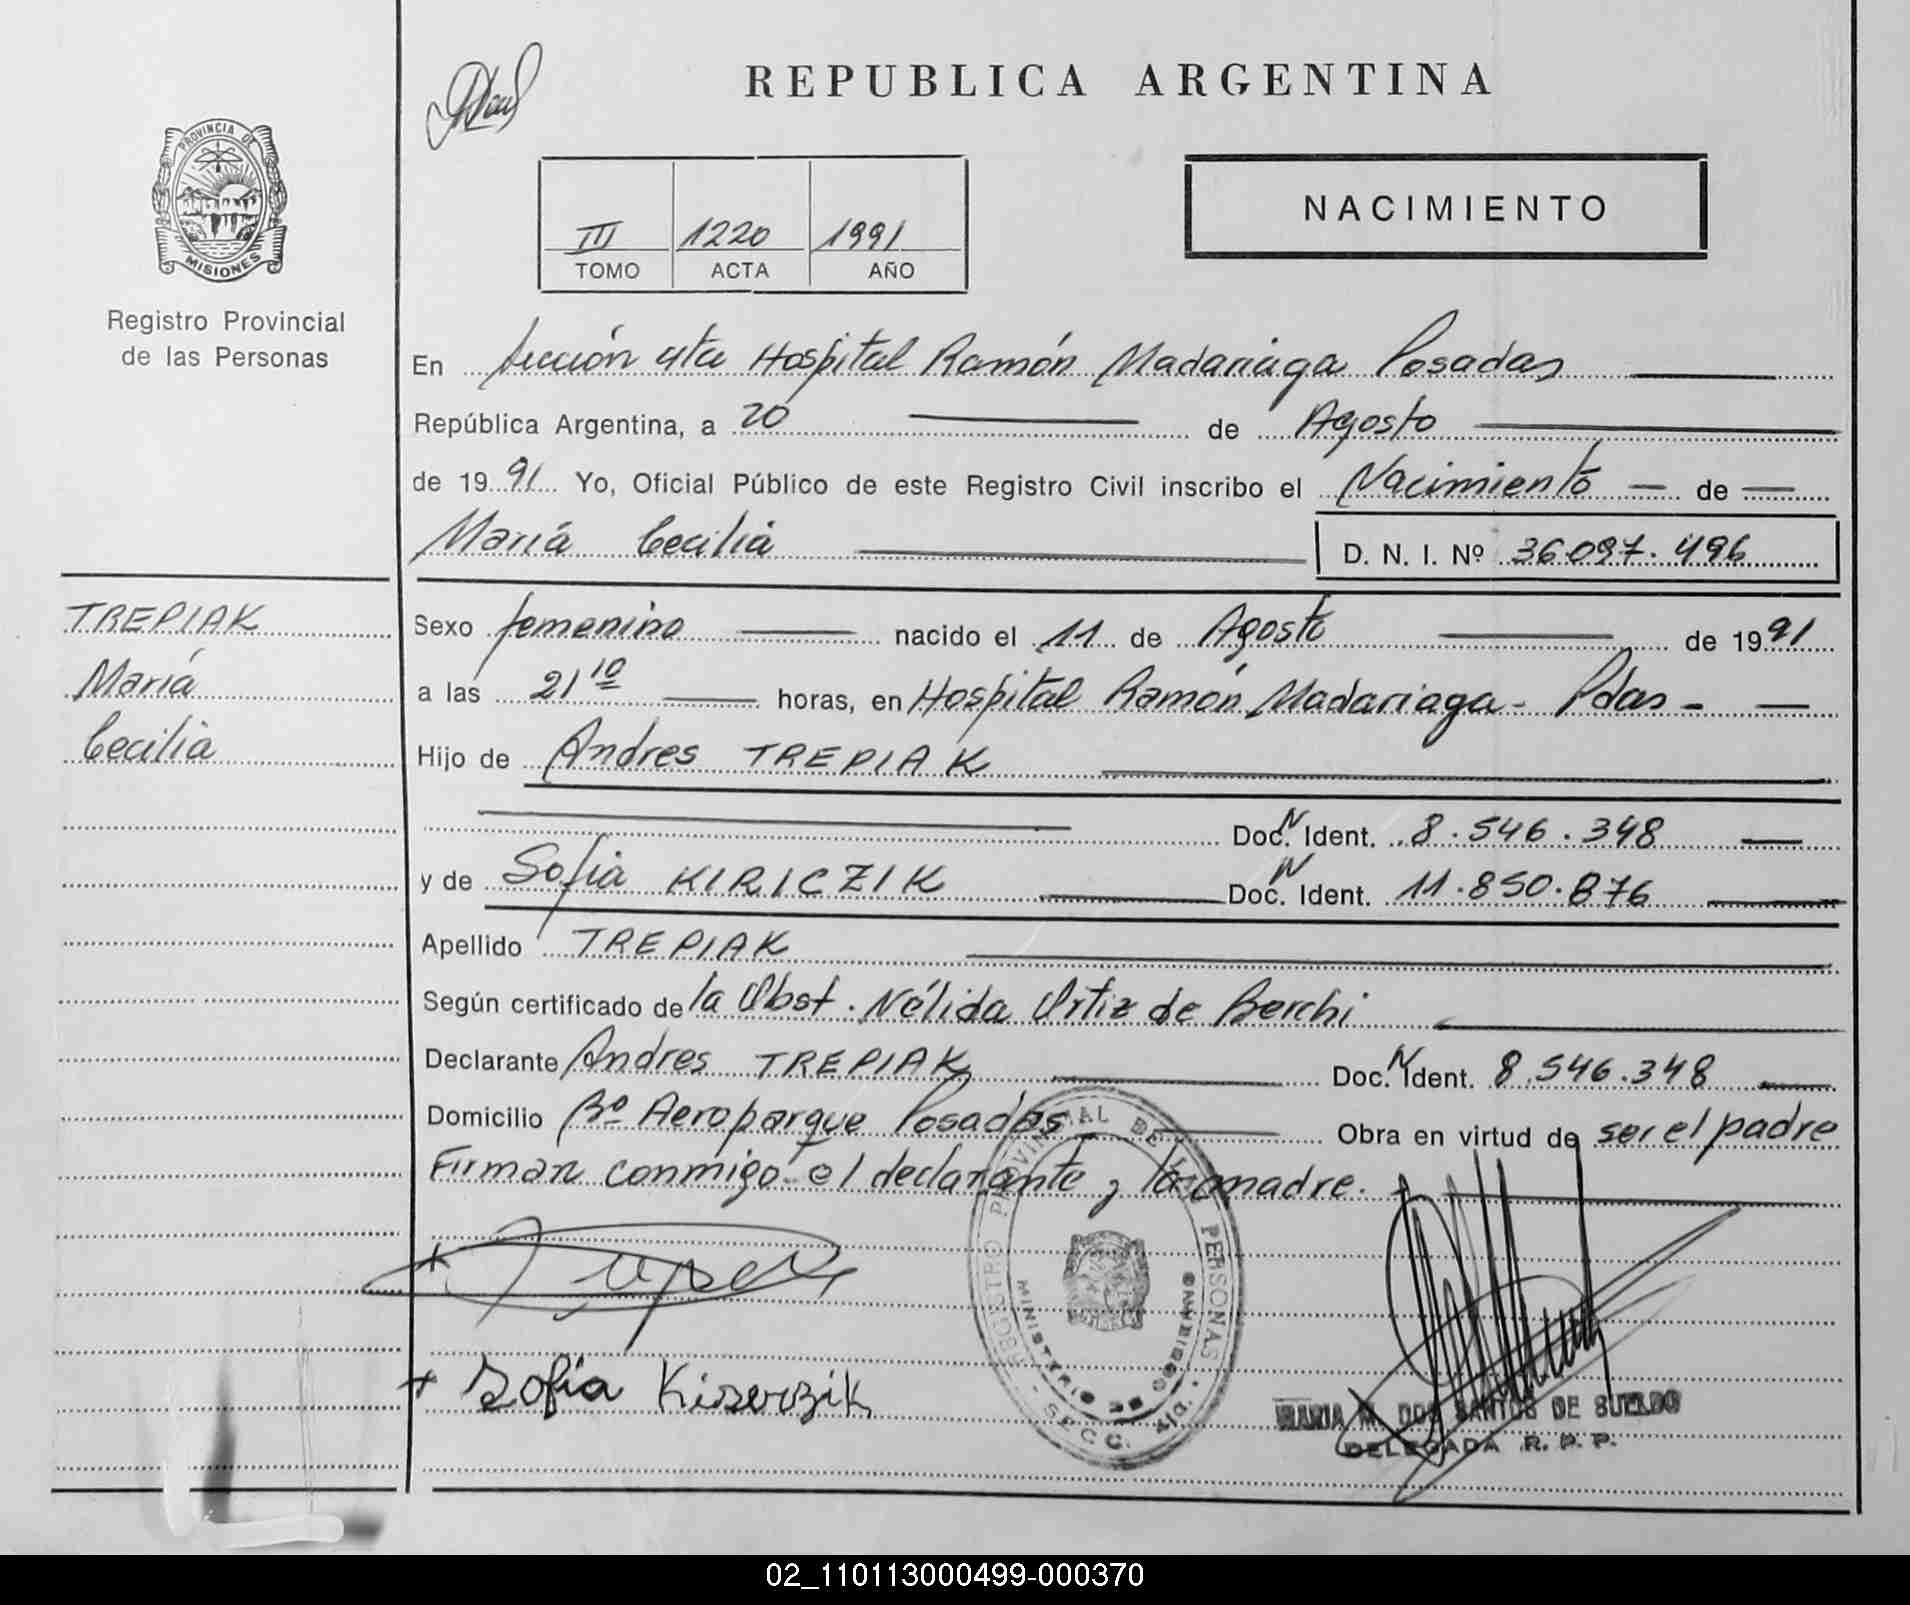 REPUBLICA ARGENTINA
PROVINCIA DE
MISIONES
Registro Provincial
de las Personas
III 1220 1991
TOMO ACTA AÑO
NACIMIENTO
En Sección 4ta Hospital Ramón Madariaga Posadas
República Argentina, a 20 de Agosto
de 1991 Yo, Oficial Público de este Registro Civil inscribo el Nacimiento de
María Cecilia D. N. I. Nº 36.097.496
TREPIAK
María
Cecilia
Sexo femenino nacido el 11 de Agosto de 1991
a las 21 10 horas, en Hospital Ramón Madariaga - Pdas -
Hijo de Andres TREPIAK
Doc. N Ident. 8.546.348
y de Sofia KIRICZIK Doc. N Ident. 11.850.876
Apellido TREPIAK
Según certificado de la Obst. Nélida Ortiz de Berchi
Declarante Andres TREPIAK Doc. N Ident. 8.546.348
Domicilio Bº Aeroparque Posadas Obra en virtud de ser el padre
Firman conmigo el declarante y la madre.
REGISTRO PROVINCIAL DE LAS PERSONAS
MINISTERIO DE GOBIERNO
SECC.
+ Sofia
MARIA M. DOS SANTOS DE SUELDO
DELEGADA R. P. P.
02_110113000499-000370